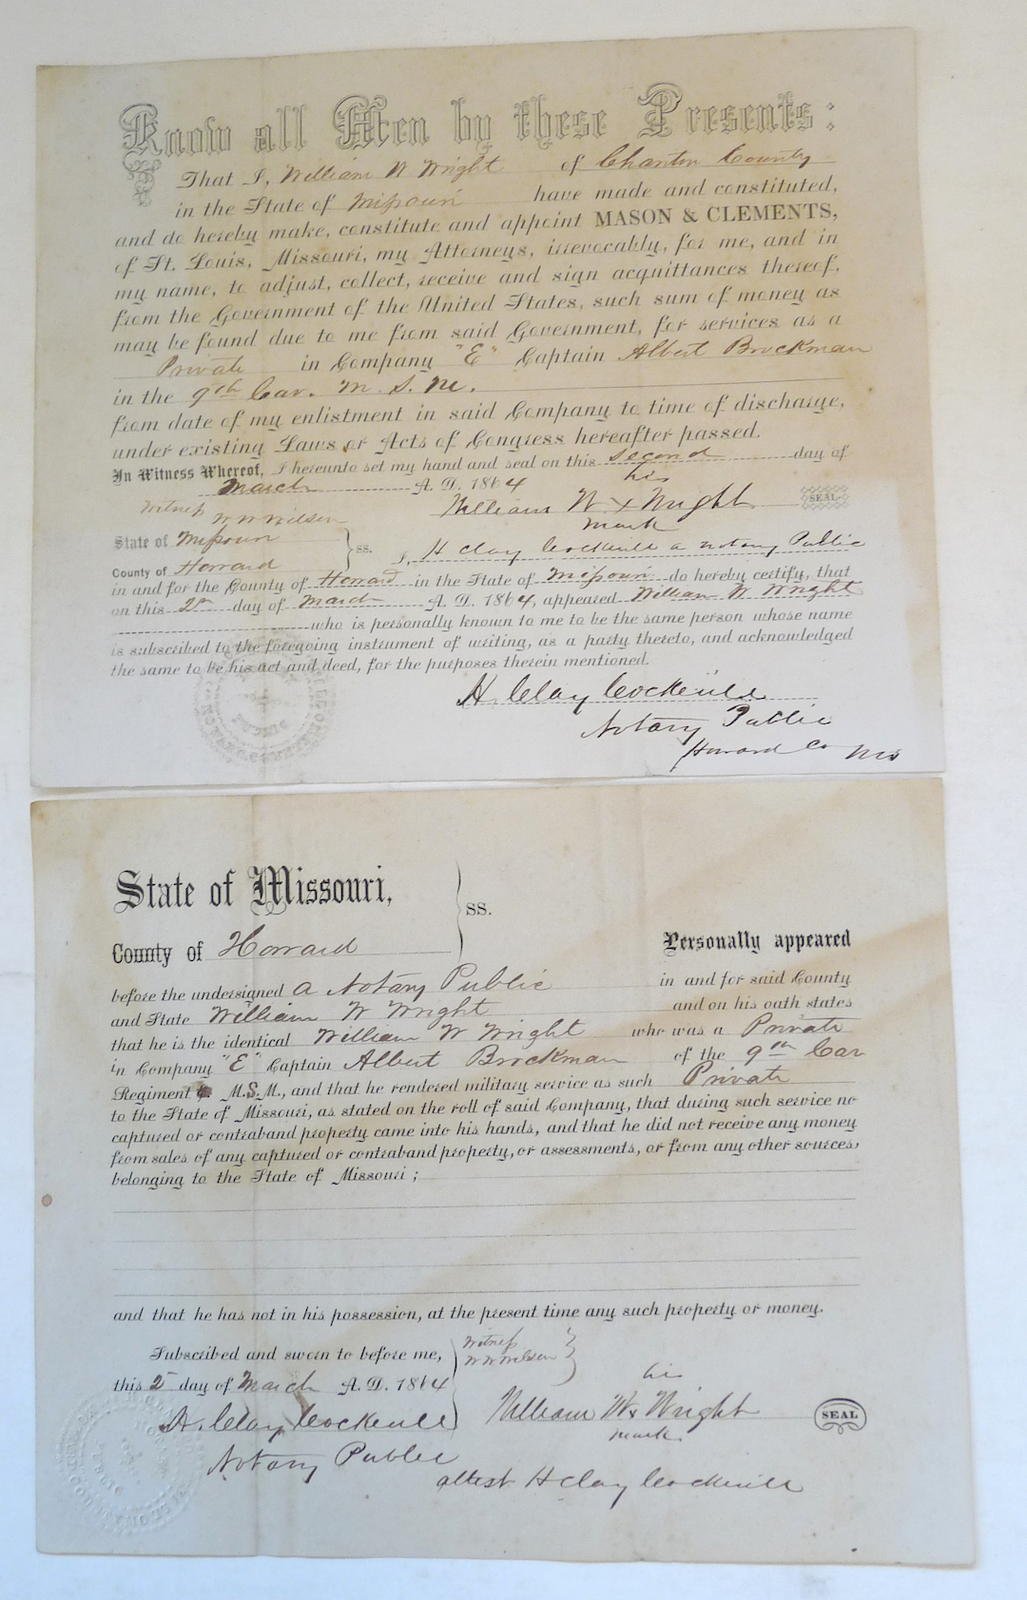 Know all Men by these Presents:
That I, William W Wright of Chariton County
in the State of Missouri have made and constituted,
and do hereby make, constitute and appoint MASON & CLEMENTS,
of St. Louis, Missouri, my Attorneys, irrevocably, for me, and in
my name, to adjust, collect, receive and sign acquittances thereof,
from the Government of the United States, such sum of money as
may be found due to me from said Government, for services as a
Private in Company "E" Captain Albert Brockman
in the 9th Cav. M. S. M.
from date of my enlistment in said Company to time of discharge,
under existing Laws or Acts of Congress hereafter passed.
In Witness Whereof, I hereunto set my hand and seal on this Second day of
March A. D. 1864 his
William W x Wright SEAL
mark
Witness W W Wilson
State of Missouri
County of Howard ss. I, H Clay Cockerill a Notary Public
in and for the County of Howard in the State of Missouri do hereby certify, that
on this 2d day of March A. D. 1864, appeared William W Wright
who is personally known to me to be the same person whose name
is subscribed to the foregoing instrument of writing, as a party thereto, and acknowledged
the same to be his act and deed, for the purposes therein mentioned.
H. Clay Cockerill
Notary Public
Howard Co Mo
State of Missouri,
ss.
County of Howard Personally appeared
before the undersigned a Notary Public in and for said County
and State William W Wright and on his oath states
that he is the identical William W Wright who was a Private
in Company "E" Captain Albert Brockman of the 9th Cav
Regiment M.S.M., and that he rendered military service as such Private
to the State of Missouri, as stated on the roll of said Company, that during such service no
captured or contraband property came into his hands, and that he did not receive any money
from sales of any captured or contraband property, or assessments, or from any other sources,
belonging to the State of Missouri;
and that he has not in his possession, at the present time any such property or money.
Subscribed and sworn to before me, Witness
W W Wilson
this 2d day of March A. D. 1864 his
H. Clay Cockerill William W x Wright SEAL
mark
Notary Public
attest H Clay Cockerill